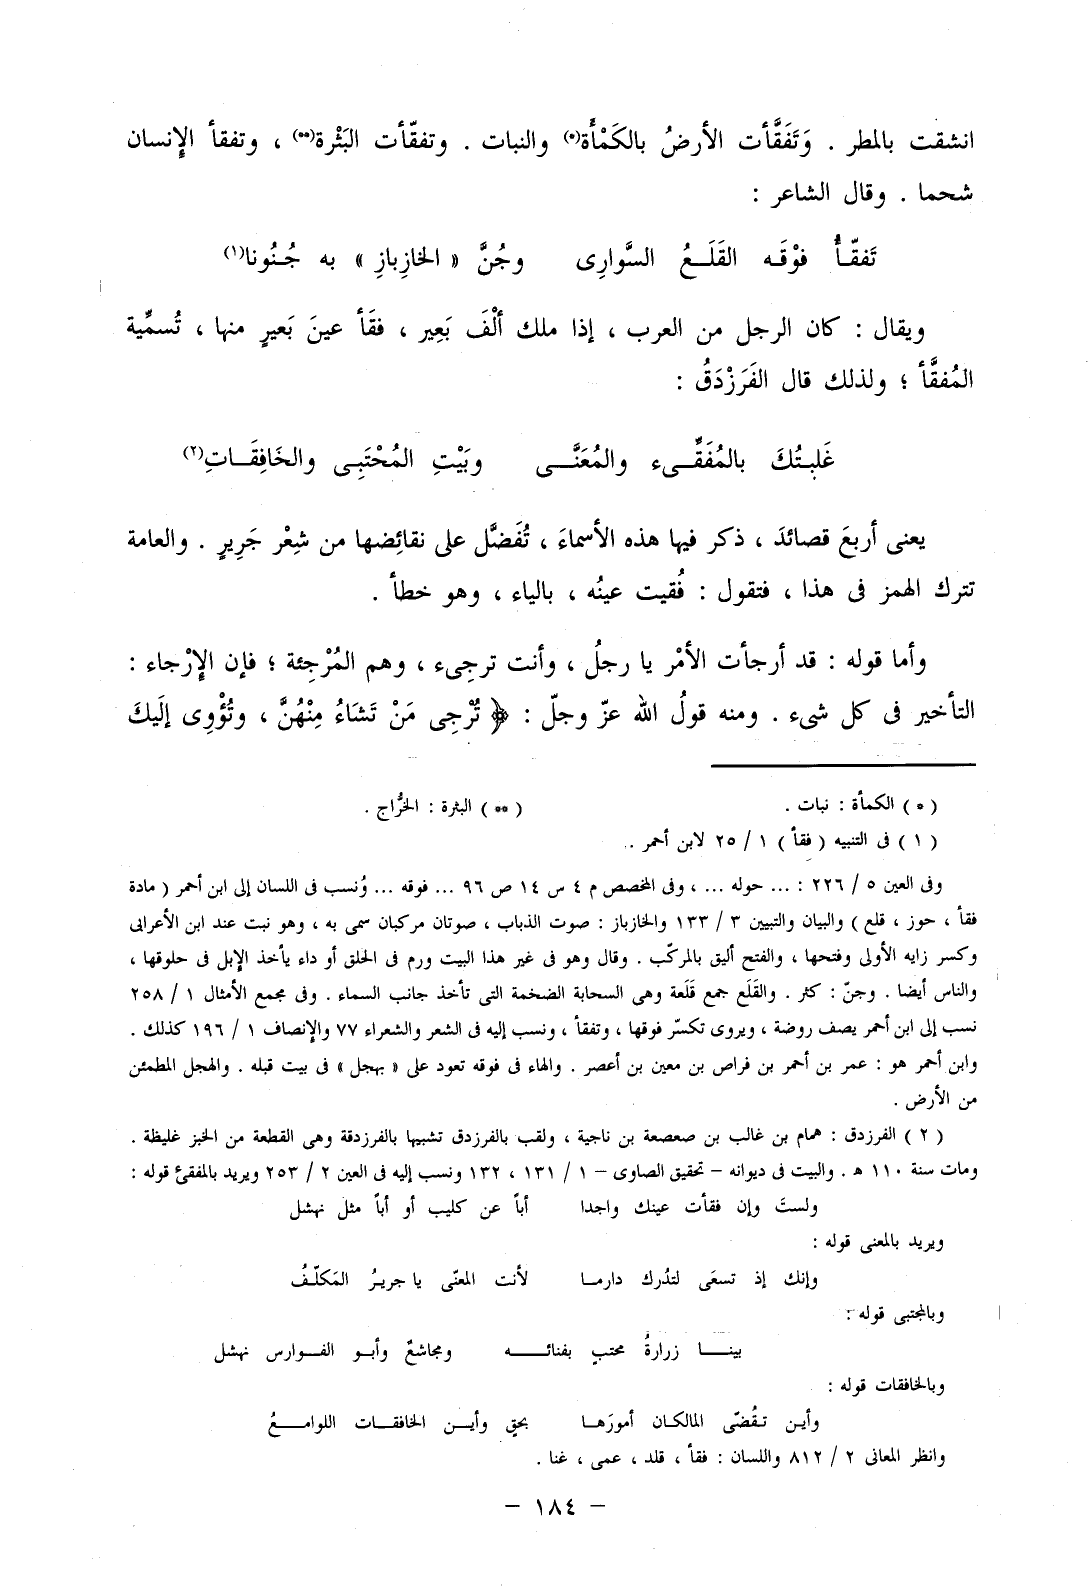 انشقت بالمطر . وَتَفَقَّأت الأرضُ بالكَمْأة(*) والنبات . وتفقّأت البَثْرة(**) ، وتفقأ الإنسان
شحما . وقال الشاعر :
تَفقّأُ فوْقَه القَلَعُ السَّوارِى وجُنَّ « الخازِبازِ » به جُنُونا(١)
ويقال : كان الرجل من العرب ، إذا ملك ألْفَ بَعِير ، فقَأ عينَ بَعيرٍ منها ، تُسمِّية
المُفقَّأ ؛ ولذلك قال الفَرَزْدَقُ :
غَلبتُكَ بالمُفَقِّىء والمُعَنَّى وبَيْتِ المُحْتَبِى والخَافِقَاتِ(٢)
يعنى أربعَ قصائدَ ، ذكر فيها هذه الأسماءَ ، تُفَضَّل على نقائِضها من شِعْر جَرِيرٍ . والعامة
تترك الهمز فى هذا ، فتقول : فُقيت عينُه ، بالياء ، وهو خطأ .
وأما قوله : قد أرجأت الأمْر يا رجلُ ، وأنت ترجِىء ، وهم المُرْجِئة ؛ فإن الإرْجاء :
التأخير فى كل شىء . ومنه قولُ الله عزّ وجلّ : ﴿ تُرْجِى مَنْ تَشَاءُ مِنْهُنَّ ، وتُؤْوِى إلَيكَ
( * ) الكمأة : نبات . ( ** ) البثرة : الخُّراج .
( ١ ) فى التنبيه ( فقأ ) ١ / ٢٥ لابن أحمر .
وفى العين ٥ / ٢٢٦ : ... حوله ... ، وفى المخصص م ٤ س ١٤ ص ٩٦ ... فوقه ... وُنسب فى اللسان إلى ابن أحمر ( مادة
فقأ ، حوز ، قلع ) والبيان والتبيين ٣ / ١٣٣ والخازباز : صوت الذباب ، صوتان مركبان سمى به ، وهو نبت عند ابن الأعرابى
وكسر زايه الأولى وفتحها ، والفتح أليق بالمركّب . وقال وهو فى غير هذا البيت ورم فى الحلق أو داء يأخذ الإبل فى حلوقها ،
والناس أيضا . وجنّ : كثر . والقَلَع جمع قَلَعة وهى السحابة الضخمة التى تأخذ جانب السماء . وفى مجمع الأمثال ١ / ٢٥٨
نسب إلى ابن أحمر يصف روضة ، ويروى تكسّر فوقها ، وتفقأ ، ونسب إليه فى الشعر والشعراء ٧٧ والإنصاف ١ / ١٩٦ كذلك .
وابن أحمر هو : عمر بن أحمر بن فراص بن معين بن أعصر . والهاء فى فوقه تعود على « بهجل » فى بيت قبله . والهجل المطمئن
من الأرض .
( ٢ ) الفرزدق : همام بن غالب بن صعصعة بن ناجية ، ولقب بالفرزدق تشبيها بالفرزدقة وهى القطعة من الخبز غليظة .
ومات سنة ١١٠ هـ . والبيت فى ديوانه – تحقيق الصاوى – ١ / ١٣١ ، ١٣٢ ونسب إليه فى العين ٢ / ٢٥٣ ويريد بالمفقئ قوله :
ولستَ وإن فقأت عينك واجدا أباً عن كليب أو أباً مثل نهشل
ويريد بالمعنى قوله :
وإنك إذ تسعَى لتدُرك دارما لأنت المعنّى يا جريرُ المَكلّفُ
وبالمجتبى قوله :
بينا زرارةُ محتبٍ بفنائه ومجاشعٌ وأبو الفوارس نهشل
وبالخافقات قوله :
وأين تقُضّى المالكان أمورَها بحقٍ وأين الخافقات اللوامعُ
وانظر المعانى ٢ / ٨١٢ واللسان : فقأ ، قلد ، عمى ، غنا .
– ١٨٤ –